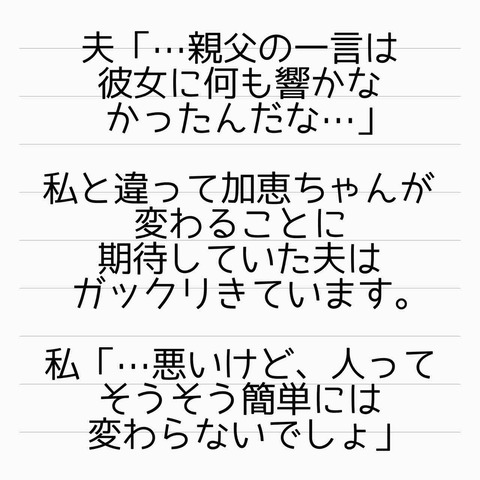 夫「…親父の一言は
彼女に何も響かな
かったんだな…」
私と違って加恵ちゃんが
変わることに
期待していた夫は
ガックリきています。
私「…悪いけど、人って
そうそう簡単には
変わらないでしょ」